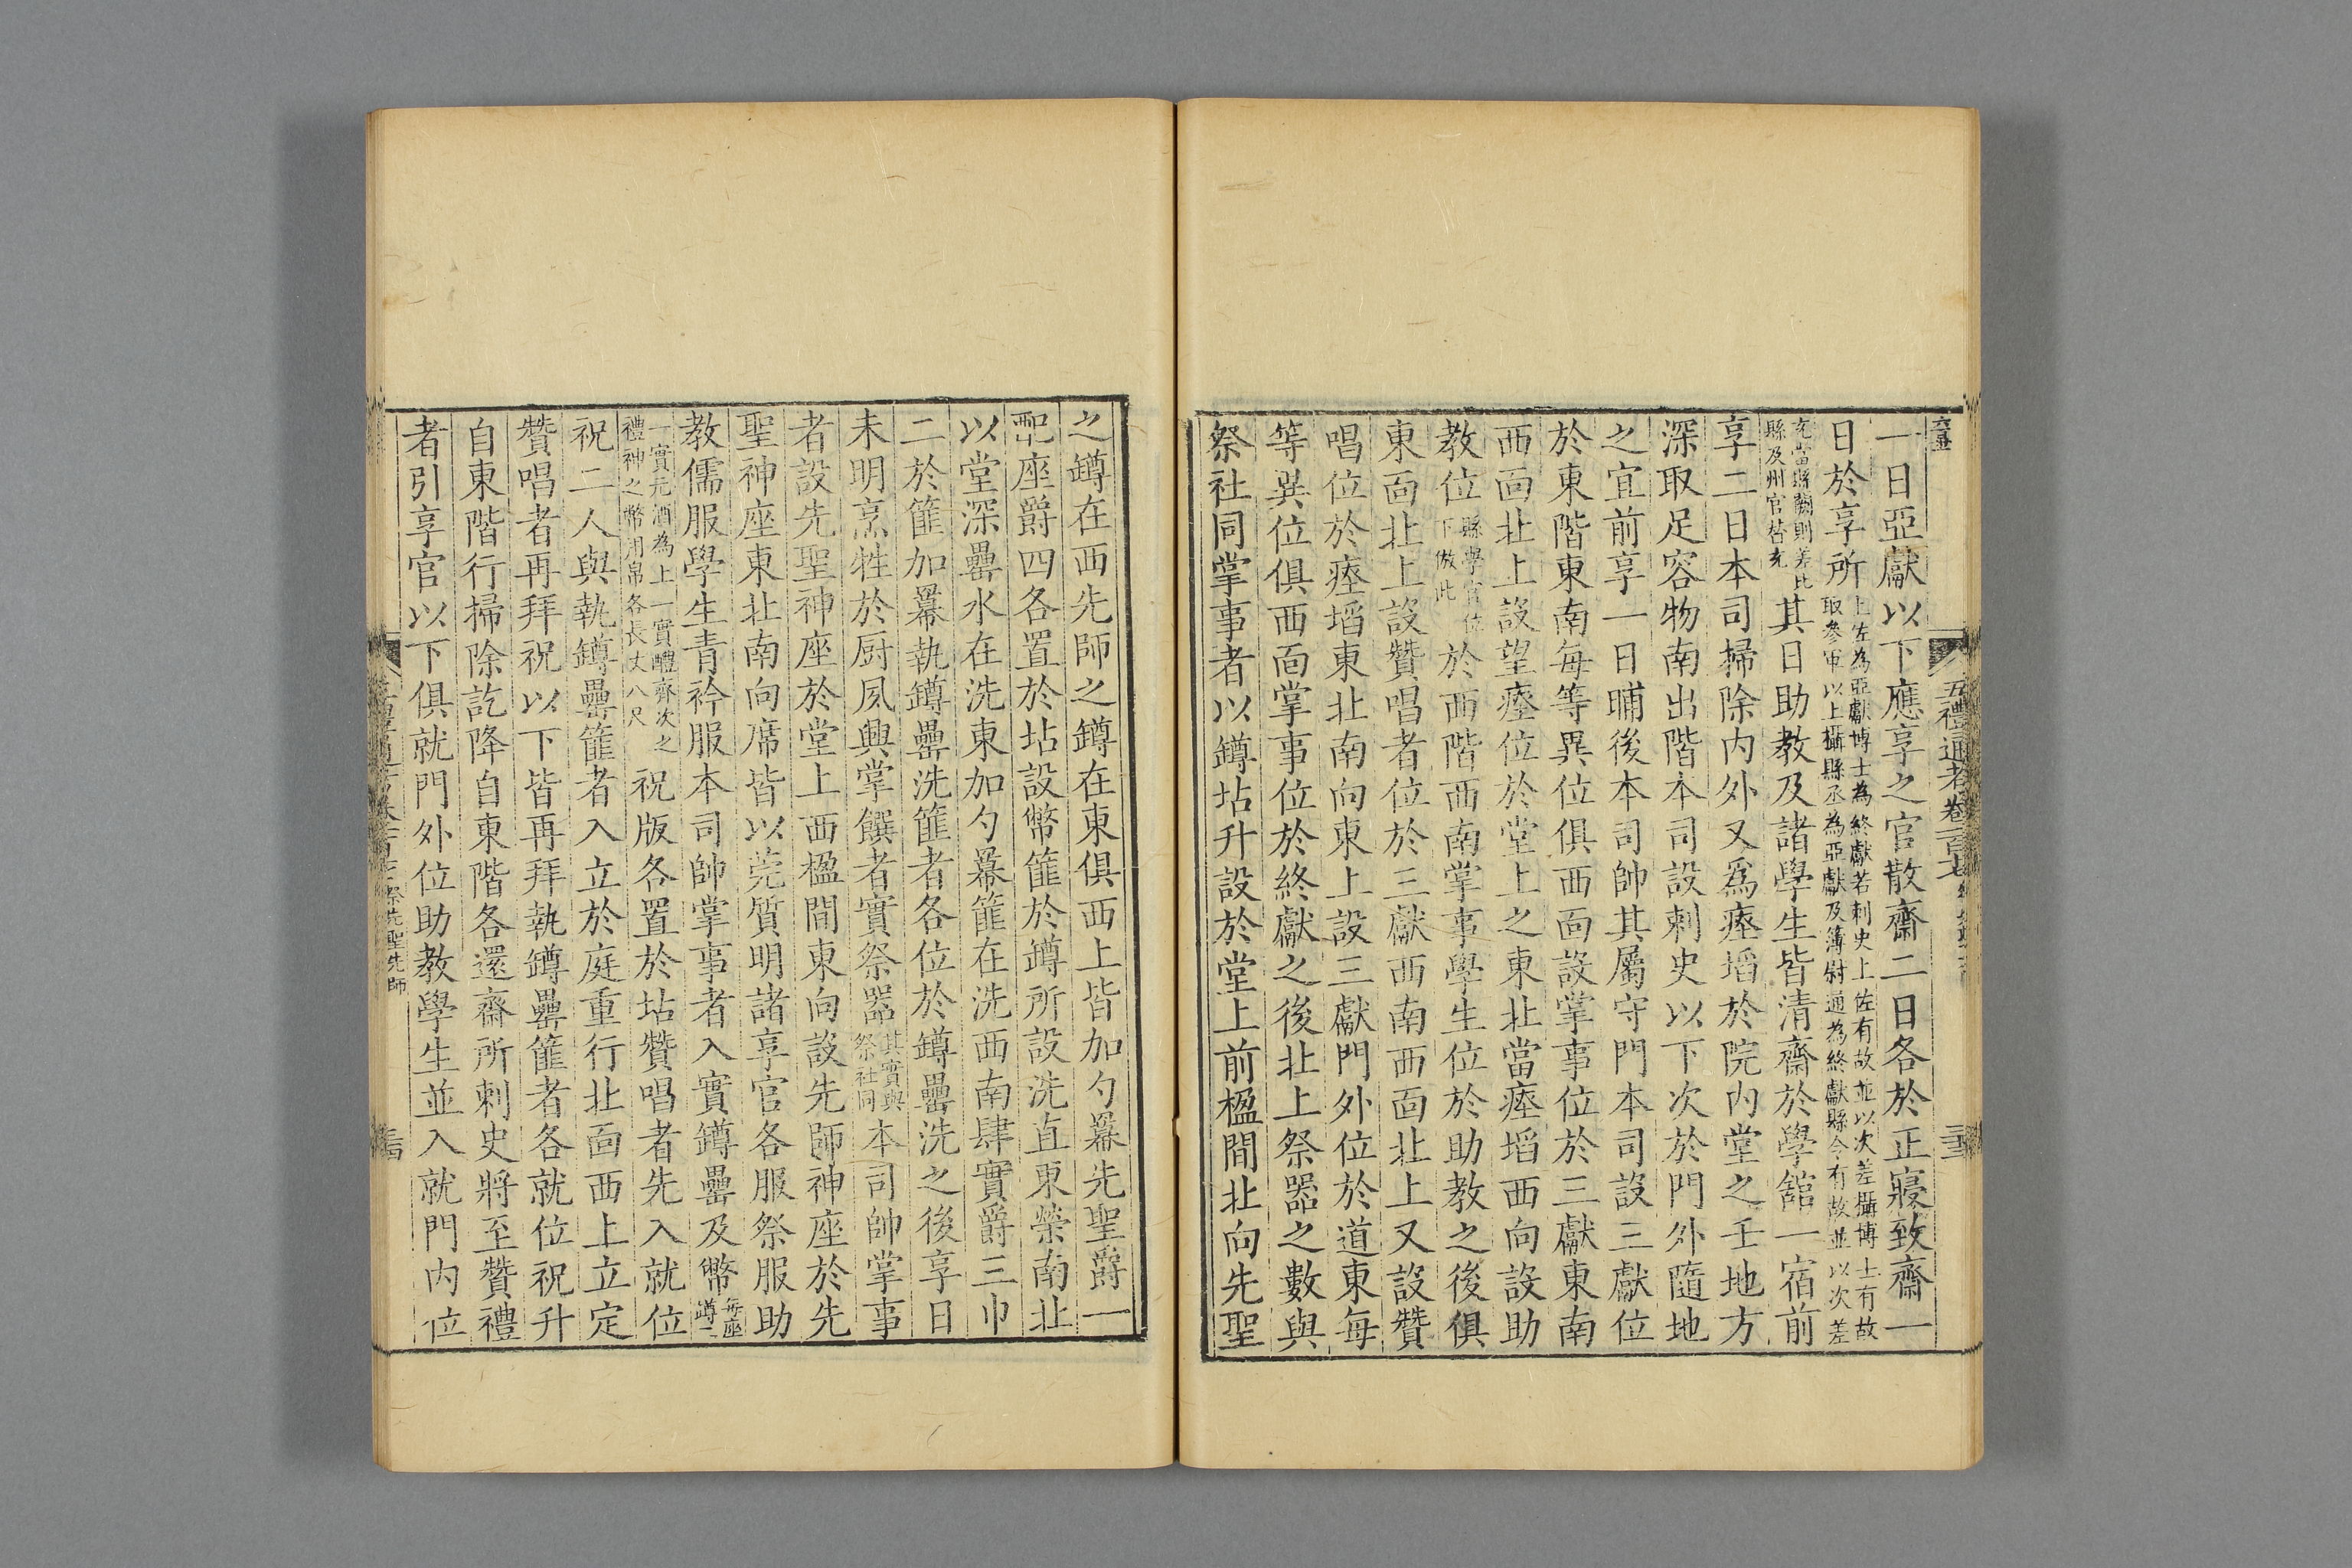 一日亞獻以下應享之官散齋二日各於正寢致齋一
日於享所上佐為亞獻博士為終獻若刺史上佐有故並以次差攝博士有故取參軍以上攝縣丞為亞獻及簿尉通為終獻縣令有故並以次差
充當縣闕則差比縣及州官替充其日助教及諸學生皆清齋於學舘一宿前
享二日本司掃除内外又爲瘞埳於院内堂之壬地方
深取足容物南出階本司設刺史以下次於門外隨地
之宜前享一日晡後本司帥其屬守門本司設三獻位
於東階東南每等異位俱西面設掌事位於三獻東南
西面北上設望瘞位於堂上之東北當瘞埳西向設助
教位縣學官位下倣此於西階西南掌事學生位於助教之後俱
東面北上設贊唱者位於三獻西南西面北上又設贊
唱位於瘞埳東北南向東上設三獻門外位於道東每
等異位俱西面掌事位於終獻之後北上祭器之數與
祭社同掌事者以罇坫升設於堂上前楹間北向先聖
之罇在西先師之罇在東俱西上皆加勺羃先聖爵一
配座爵四各置於坫設幣篚於罇所設洗直東榮南北
以堂深罍水在洗東加勺羃篚在洗西南肆實爵三巾
二於篚加羃執罇罍洗篚者各位於罇罍洗之後享日
未明烹牲於厨夙興掌饌者實祭器其實與祭社同本司帥掌事
者設先聖神座於堂上西楹間東向設先師神座於先
聖神座東北南向席皆以莞質明諸享官各服祭服助
教儒服學生青衿服本司帥掌事者入實罇罍及幣每座罇二
一實元酒為上一實醴齊次之禮神之幣用帛各長丈八尺祝版各置於坫贊唱者先入就位
祝二人與執罇罍篚者入立於庭重行北面西上立定
贊唱者再拜祝以下皆再拜執罇罍篚者各就位祝升
自東階行掃除訖降自東階各還齋所刺史將至贊禮
者引享官以下俱就門外位助教學生並入就門内位
五禮通考卷一百十七
祭先聖先師